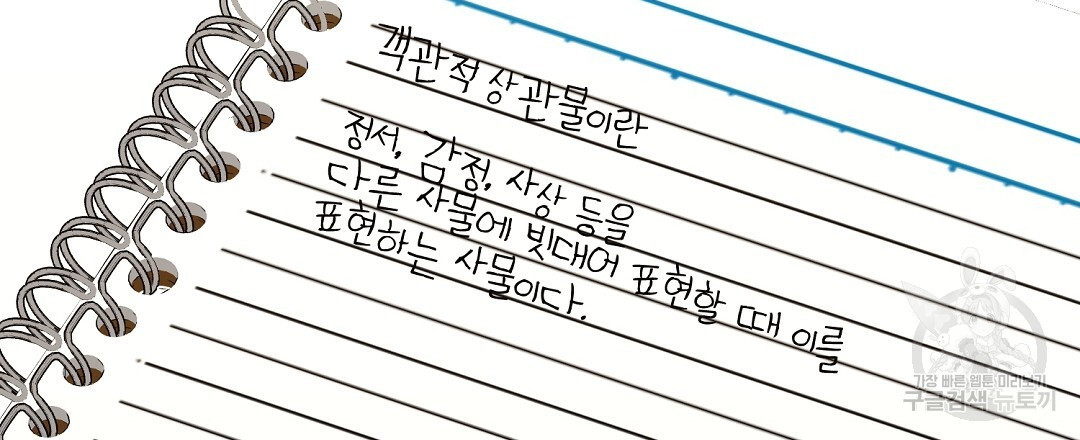 객관적 상관물이란
정서, 감정, 사상 등을
다른 사물에 빗대어 표현할 때 이를
표현하는 사물이다.
가장 빠른 웹툰 미리보기
구글검색 뉴토끼